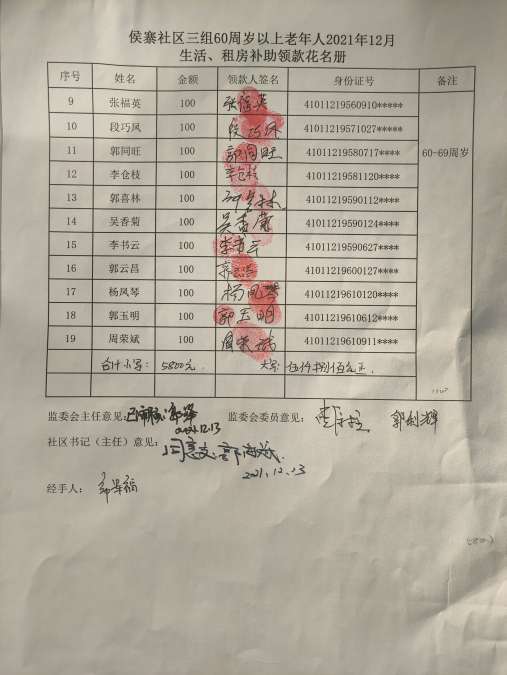 侯寨社区三组60周岁以上老年人2021年12月
生活、租房补助领款花名册
序号 姓名 金额 领款人签名 身份证号 备注
9 张福英 100 张福英 41011219560910*****
10 段巧凤 100 段巧凤 41011219571027*****
11 郭同旺 100 郭同旺 41011219580717**** 60-69周岁
12 李仓枝 100 李仓枝 41011219581120****
13 郭喜林 100 41011219590112****
14 吴香菊 100 吴香菊 41011219590124****
15 李书云 100 李书云 41011219590627****
16 郭云昌 100 41011219600127****
17 杨凤琴 100 杨凤琴 41011219610120****
18 郭玉明 100 郭玉明 41011219610612****
19 周荣斌 100 周荣斌 41011219610911****
合计小写: 5800元 大写: 伍仟捌佰元正
监委会主任意见: 监委会委员意见: 郭利辉
2021.12.13
社区书记（主任）意见:
2021.12.13
经手人: